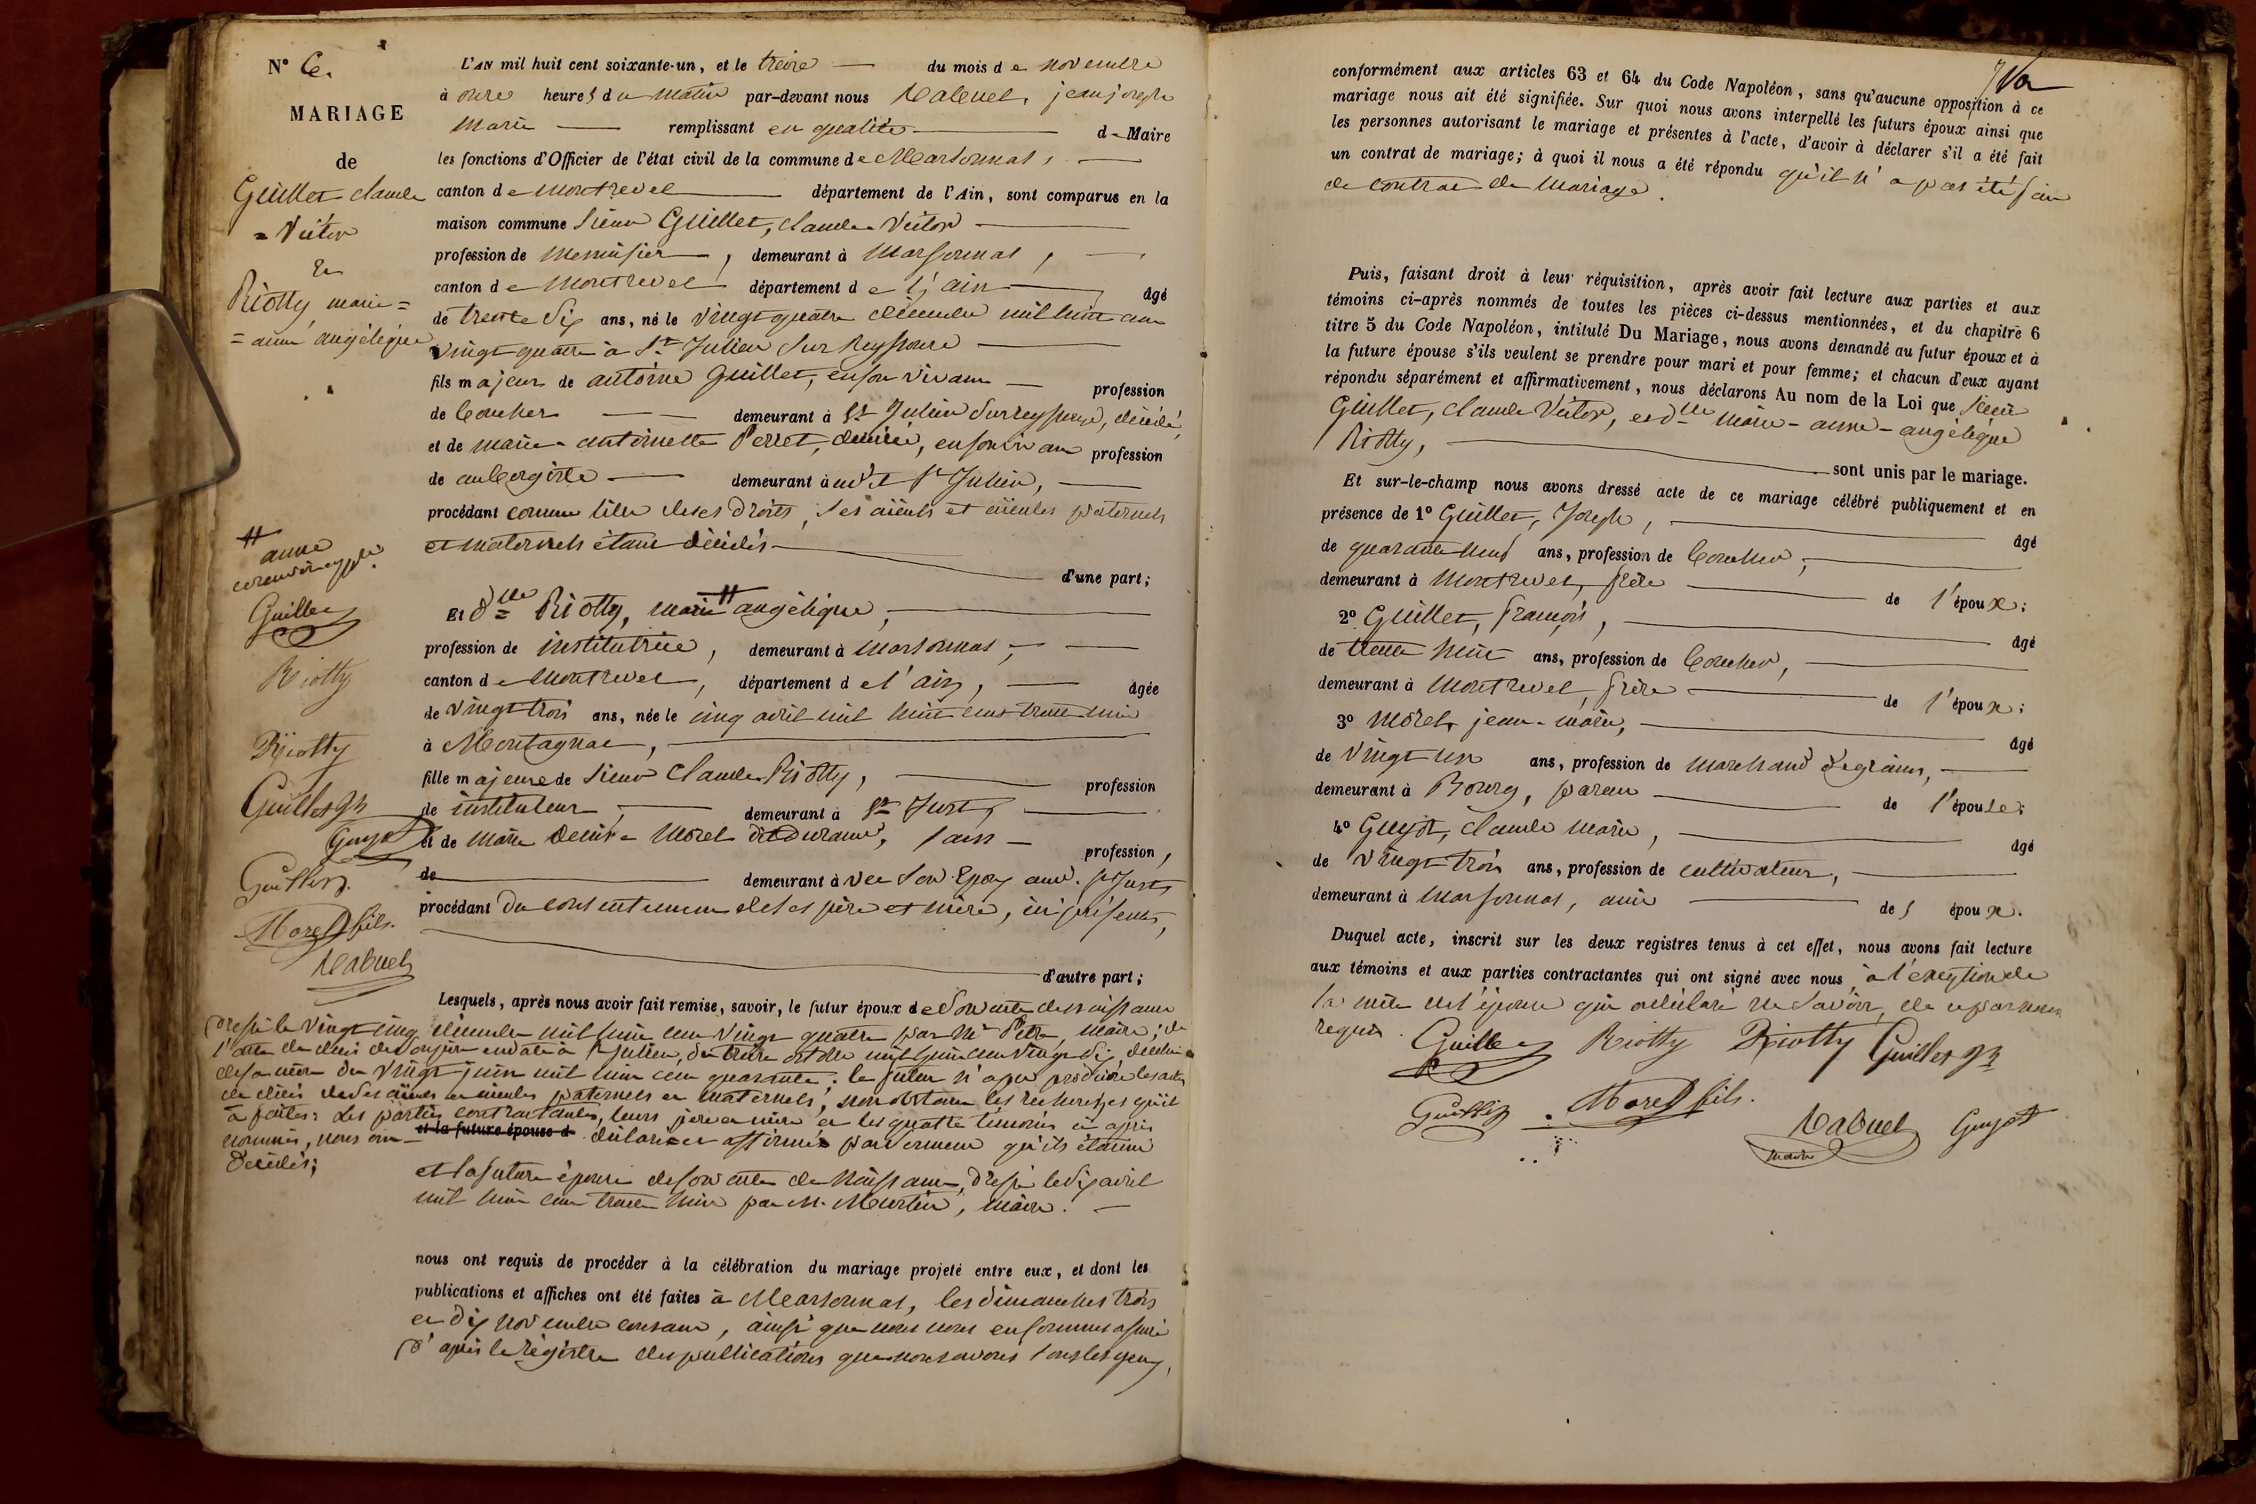 N° 6.
MARIAGE
de
Guillet claude
= Victor
Et
Riotty marie =
= anne angélique
L'AN mil huit cent soixante-un, et le treize du mois de novembre
à onze heures du matin par-devant nous Rabuel, jean joseph
marie remplissant en qualité de Maire
les fonctions d'Officier de l'état civil de la commune de Marsonnas,
canton de Montrevel département de l'Ain, sont comparus en la
maison commune Sieur Guillet, claude Victor
profession de Menuisier, demeurant à Marsonnas,
canton de Montrevel département de l'ain âgé
de trente six ans, né le vingt quatre décembre mil huit cent
vingt quatre à St Julien sur Reyssouze
fils majeur de antoine Guillet, en son vivant profession
de boucher demeurant à St Julien sur reyssouze, décédé,
et de marie antoinette Perret, décédée, en son vivant profession
de aubergiste demeurant à udit St Julien,
procédant comme libre de ses droits, ses aïeuls et aïeules paternels
et maternels étant décédés
d'une part;
Et dlle Riotty, marie # angélique,
profession de institutrice, demeurant à Marsonnas,
canton de Montrevel, département de l'ain, âgée
de vingt trois ans, née le cinq avril mil huit cent trente huit
à Montagnat,
fille majeure de Sieur Claude Riotty, profession
de instituteur, demeurant à St Just,
et de Marie Denise Morel, sans profession,
de demeurant avec son Epoux audt St Just,
procédant du consentement de ses père et mère, ici présents,
d'autre part;
# anne
Guillet
Riotty
Riotty
Guillet
Guyot
Guillet
Morel fils.
Rabuel
Lesquels, après nous avoir fait remise, savoir, le futur époux de son acte de naissance
dressé le vingt cinq décembre mil huit cent vingt quatre par Mr maire; de
l'acte de décès de son père en date à St Julien, du treize octobre mil huit cent vingt six, de celui
de sa mère du vingt juin mil huit cent quarante; le futur n'a pu produire les actes
de décès de ses aïeuls et aïeules paternels et maternels, nonobstant les recherches qu'il
a faites: Les parties contractantes, leurs père et mère et les quatre témoins ci après
nommés, nous ont et la future épouse d déclaré et affirmé par serment qu'ils étaient
décédés;
et la future épouse de son acte de naissance, dressé le six avril
mil huit cent trente huit par M. Martin, maire.
nous ont requis de procéder à la célébration du mariage projeté entre eux, et dont les
publications et affiches ont été faites à Marsonnas, les dimanches trois
et dix novembre courant, ainsi que nous nous en sommes assuré
d'après le registre des publications que nous avons sous les yeux,
conformément aux articles 63 et 64 du Code Napoléon, sans qu'aucune opposition à ce
mariage nous ait été signifiée. Sur quoi nous avons interpellé les futurs époux ainsi que
les personnes autorisant le mariage et présentes à l'acte, d'avoir à déclarer s'il a été fait
un contrat de mariage; à quoi il nous a été répondu qu'il n'a pas été fait
de contrat de mariage.
Puis, faisant droit à leur réquisition, après avoir fait lecture aux parties et aux
témoins ci-après nommés de toutes les pièces ci-dessus mentionnées, et du chapitre 6
titre 5 du Code Napoléon, intitulé Du Mariage, nous avons demandé au futur époux et à
la future épouse s'ils veulent se prendre pour mari et pour femme; et chacun d'eux ayant
répondu séparément et affirmativement, nous déclarons Au nom de la Loi que Sieur
Guillet, claude Victor, et dlle Marie-anne-angélique
Riotty,
sont unis par le mariage.
Et sur-le-champ nous avons dressé acte de ce mariage célébré publiquement et en
présence de 1° Guillet, Joseph, âgé
de quarante neuf ans, profession de boucher,
demeurant à Montrevel, frère de l'époux;
2° Guillet, françois, âgé
de trente huit ans, profession de boucher,
demeurant à Montrevel, frère de l'époux;
3° Morel, jean-marie, âgé
de vingt un ans, profession de marchand de grains,
demeurant à Bourg, parent de l'épouse;
4° Guyot, claude marie, âgé
de vingt trois ans, profession de cultivateur,
demeurant à Marsonnas, ami des époux.
Duquel acte, inscrit sur les deux registres tenus à cet effet, nous avons fait lecture
aux témoins et aux parties contractantes qui ont signé avec nous, à l'exception de
la mère de l'épouse qui a déclaré ne savoir, de ce par nous
requis.
Guillet Riotty Riotty Guillet
Guillet Morel fils. Rabuel Guyot
maire